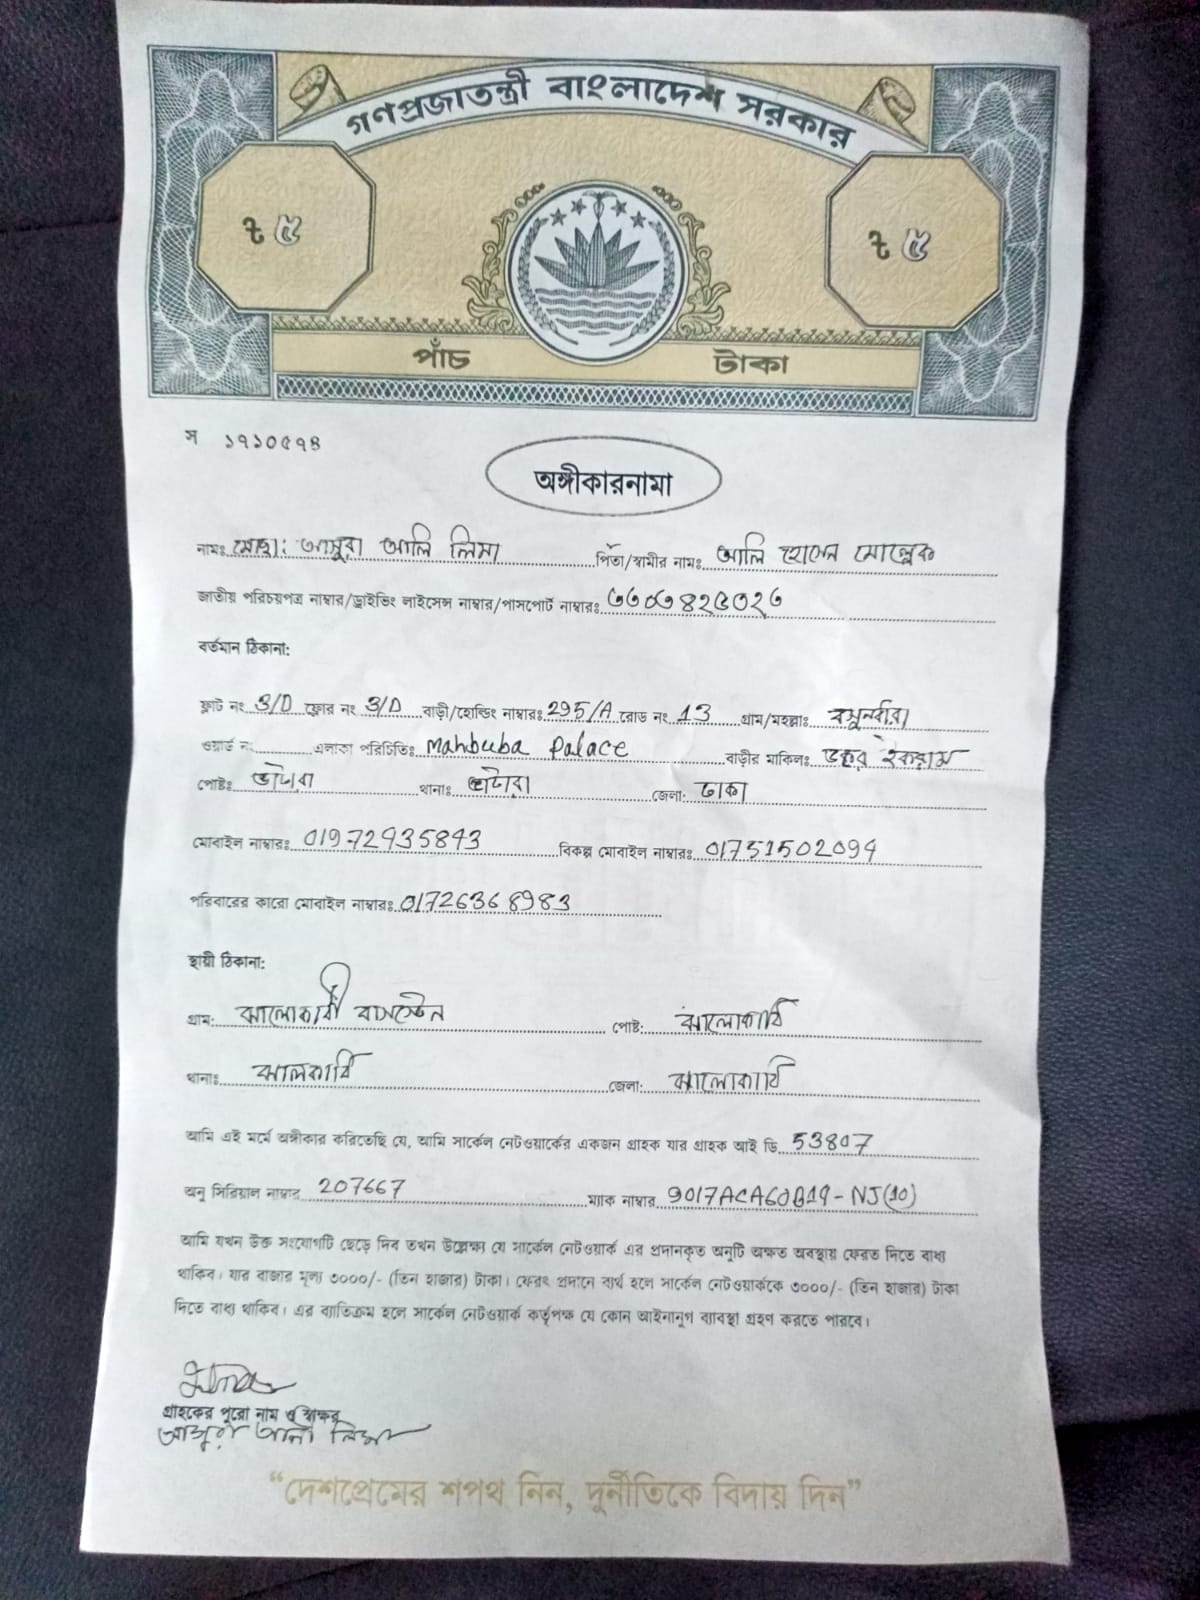 গণপ্রজাতন্ত্রী বাংলাদেশ সরকার
৳ ৫ ৳ ৫
পাঁচ টাকা
স ১৭১০৫৭৪
অঙ্গীকারনামা
নামঃ মোছা: আলি লিমা পিতা/স্বামীর নাম: আলি
জাতীয় পরিচয়পত্র নাম্বার/ড্রাইভিং লাইসেন্স নাম্বার/পাসপোর্ট নাম্বারঃ
বর্তমান ঠিকানা:
ফ্লাট নং 3/D ফ্লোর নং 3/D বাড়ী/হোল্ডিং নাম্বারঃ 295/A রোড নং 13 গ্রাম/মহল্লাঃ
ওয়ার্ড নং এলাকা পরিচিতিঃ Mahbuba Palace বাড়ীর মালিকঃ ডক্টর ইকরাম
পোষ্টঃ ভাটারা থানাঃ ভাটারা জেলা: ঢাকা
মোবাইল নাম্বারঃ 01972935843 বিকল্প মোবাইল নাম্বারঃ 01751502094
পরিবারের কারো মোবাইল নাম্বারঃ 01726368983
স্থায়ী ঠিকানা:
গ্রাম: ঝালোকাঠী পোষ্ট: ঝালোকাঠি
থানাঃ ঝালকাঠি জেলা: ঝালোকাঠি
আমি এই মর্মে অঙ্গীকার করিতেছি যে, আমি সার্কেল নেটওয়ার্কের একজন গ্রাহক যার গ্রাহক আই ডি 53807
অনু সিরিয়াল নাম্বার 207667 ম্যাক নাম্বার 9017ACA60B19-NJ(10)
আমি যখন উক্ত সংযোগটি ছেড়ে দিব তখন উল্লেক্ষ্য যে সার্কেল নেটওয়ার্ক এর প্রদানকৃত অনুটি অক্ষত অবস্থায় ফেরত দিতে বাধ্য
থাকিব। যার বাজার মূল্য ৩০০০/- (তিন হাজার) টাকা। ফেরৎ প্রদানে ব্যর্থ হলে সার্কেল নেটওয়ার্ককে ৩০০০/- (তিন হাজার) টাকা
দিতে বাধ্য থাকিব। এর ব্যাতিক্রম হলে সার্কেল নেটওয়ার্ক কর্তৃপক্ষ যে কোন আইনানুগ ব্যাবস্থা গ্রহণ করতে পারবে।
গ্রাহকের পুরো নাম ও স্বাক্ষর
আলী লিমা
“দেশপ্রেমের শপথ নিন, দুর্নীতিকে বিদায় দিন”